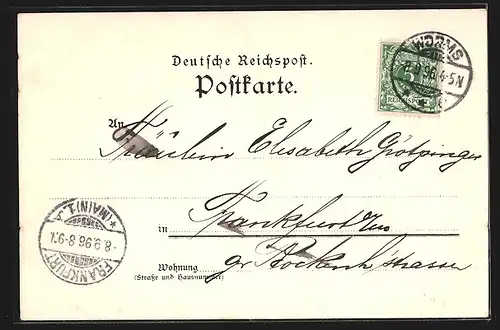 Deutsche Reichspost.
Postkarte.
WORMS
8.9.96.4-5N
5
REICHSPOST
An
Fräulein Elisabeth Grötzinger
in Frankfurt
Wohnung
(Straße und Hausnummer)
gr Bockenh'strasse
FRANKFURT
(MAIN) 1.
8.9.96.8-9N.